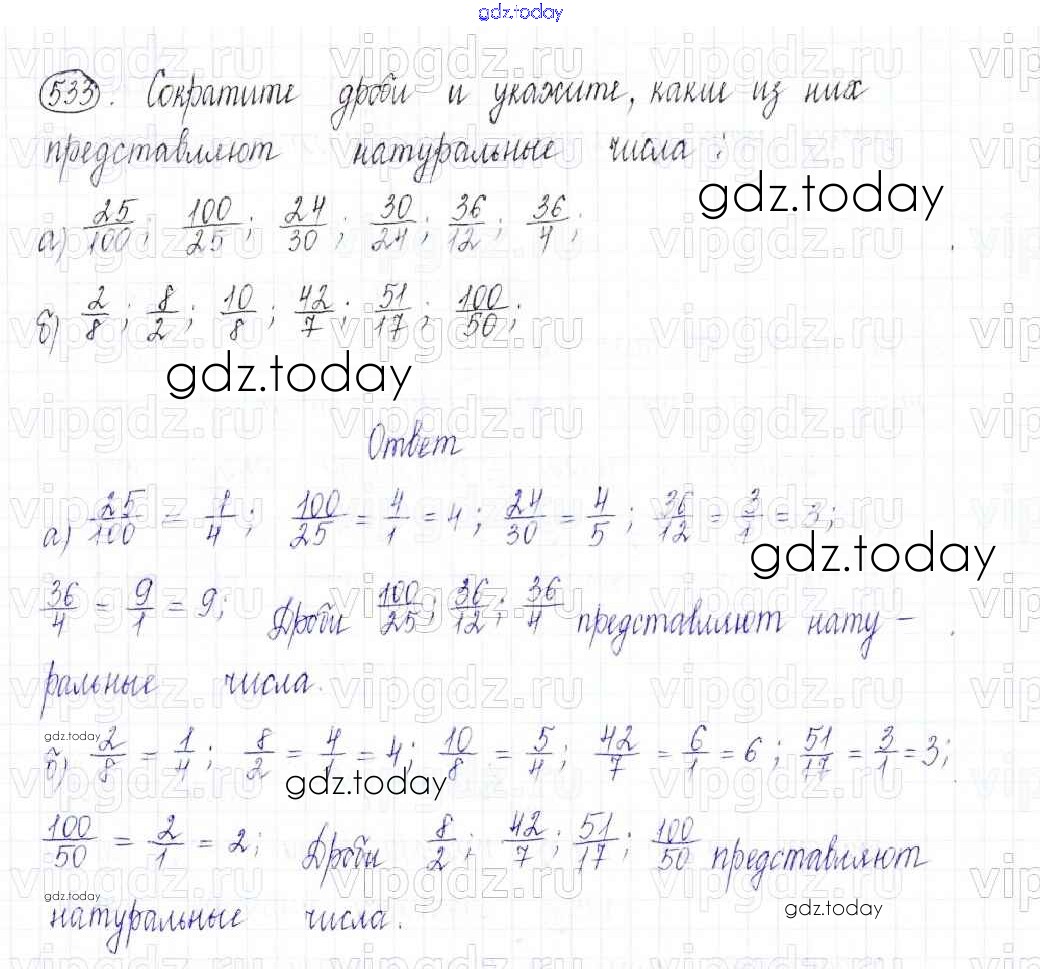 gdz.today
533. Сократите дроби и укажите, какие из них
представляют натуральные числа:
gdz.today
а) 25/100; 100/25; 24/30; 30/24; 36/12; 36/4;
б) 2/8; 8/2; 10/8; 42/7; 51/17; 100/50;
gdz.today
Ответ
а) 25/100 = 1/4; 100/25 = 4/1 = 4; 24/30 = 4/5; 36/12 = 3/1 = 3;
gdz.today
36/4 = 9/1 = 9; Дроби 100/25; 36/12; 36/4 представляют нату-
ральные числа.
gdz.today
б) 2/8 = 1/4; 8/2 = 4/1 = 4; 10/8 = 5/4; 42/7 = 6/1 = 6; 51/17 = 3/1 = 3;
gdz.today
100/50 = 2/1 = 2; Дроби 8/2; 42/7; 51/17; 100/50 представляют
gdz.today
натуральные числа.
gdz.today
vipgdz.ru